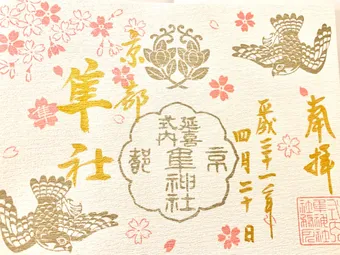 奉拝
平成三十一年
四月二十日
延喜
式内
隼神社
京
都
京都
隼社